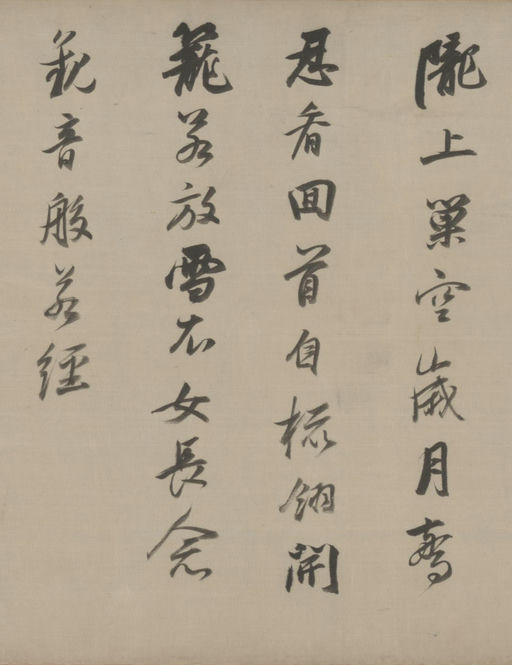 隴上巢空歲月驚
忍看回首自梳翎開
籠若放雪衣女長念
觀音般若經